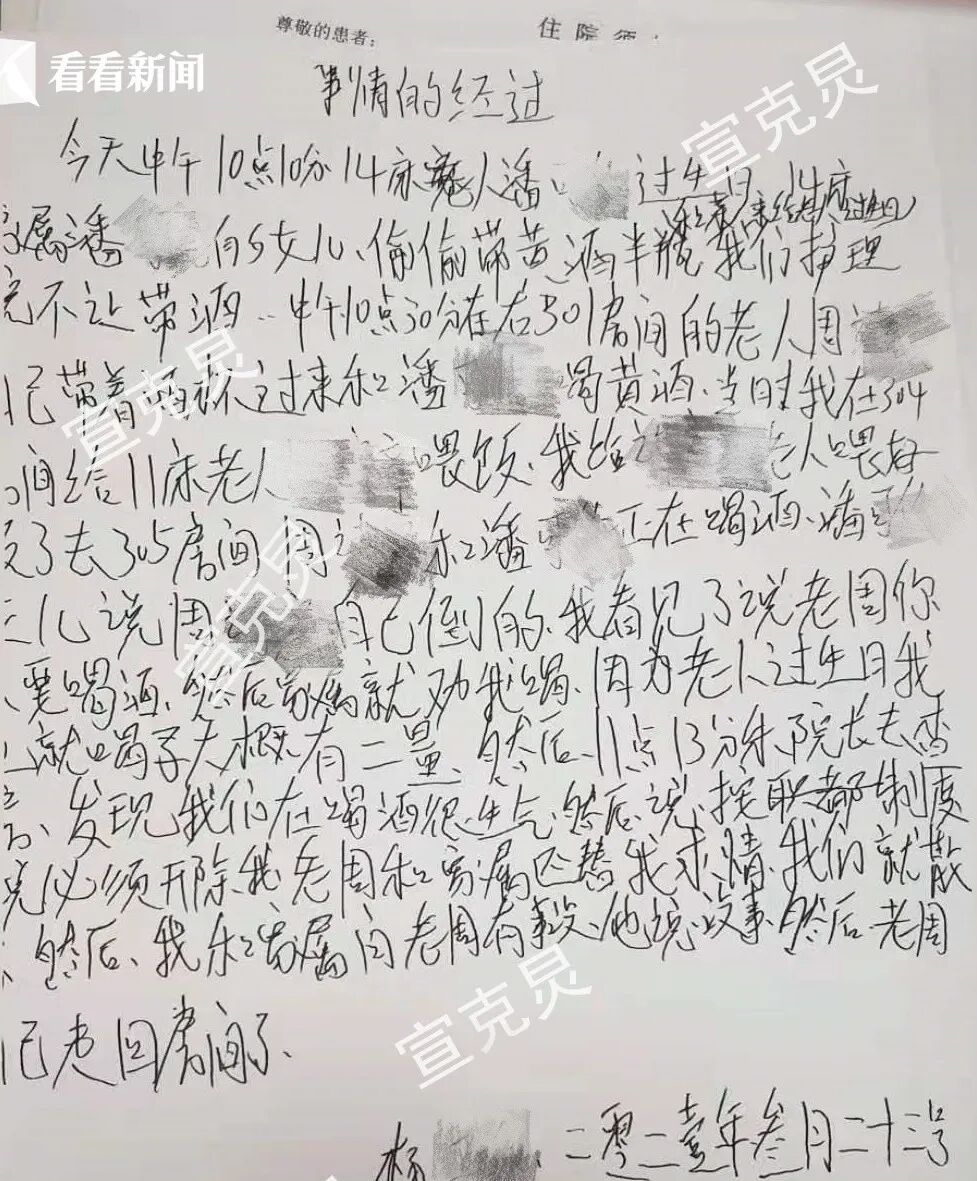 尊敬的患者：
住院须
看看新闻
事情的经过
今天中午10点10分14床老人潘 过生日
14床
家属潘 的女儿、偷偷带黄酒半瓶 我们护理
院不让带酒..中午10点30分左右301房间的老人周
己带着酒杯过来和潘 喝黄酒、当时我在304
间给11床老人 喂饭、我给 老人喂好
了去305房间 周 和潘 正在喝酒、潘
儿说周 自己倒的、我看见了说老周你
要喝酒、然后家属就劝我喝、因为老人过生日我
就喝了大概有二量、然后、11点13分朱院长去查
发现我们在喝酒很生气、然后、说、按照制度
必须开除、我、老周和家属还替我求情、我们就散
然后、我和家属问老周有事没、他说没事、然后老周
己走回房间了、
杨 二零二壹年叁月二十三号
宣克炅
宣克炅
宣克炅
宣克炅